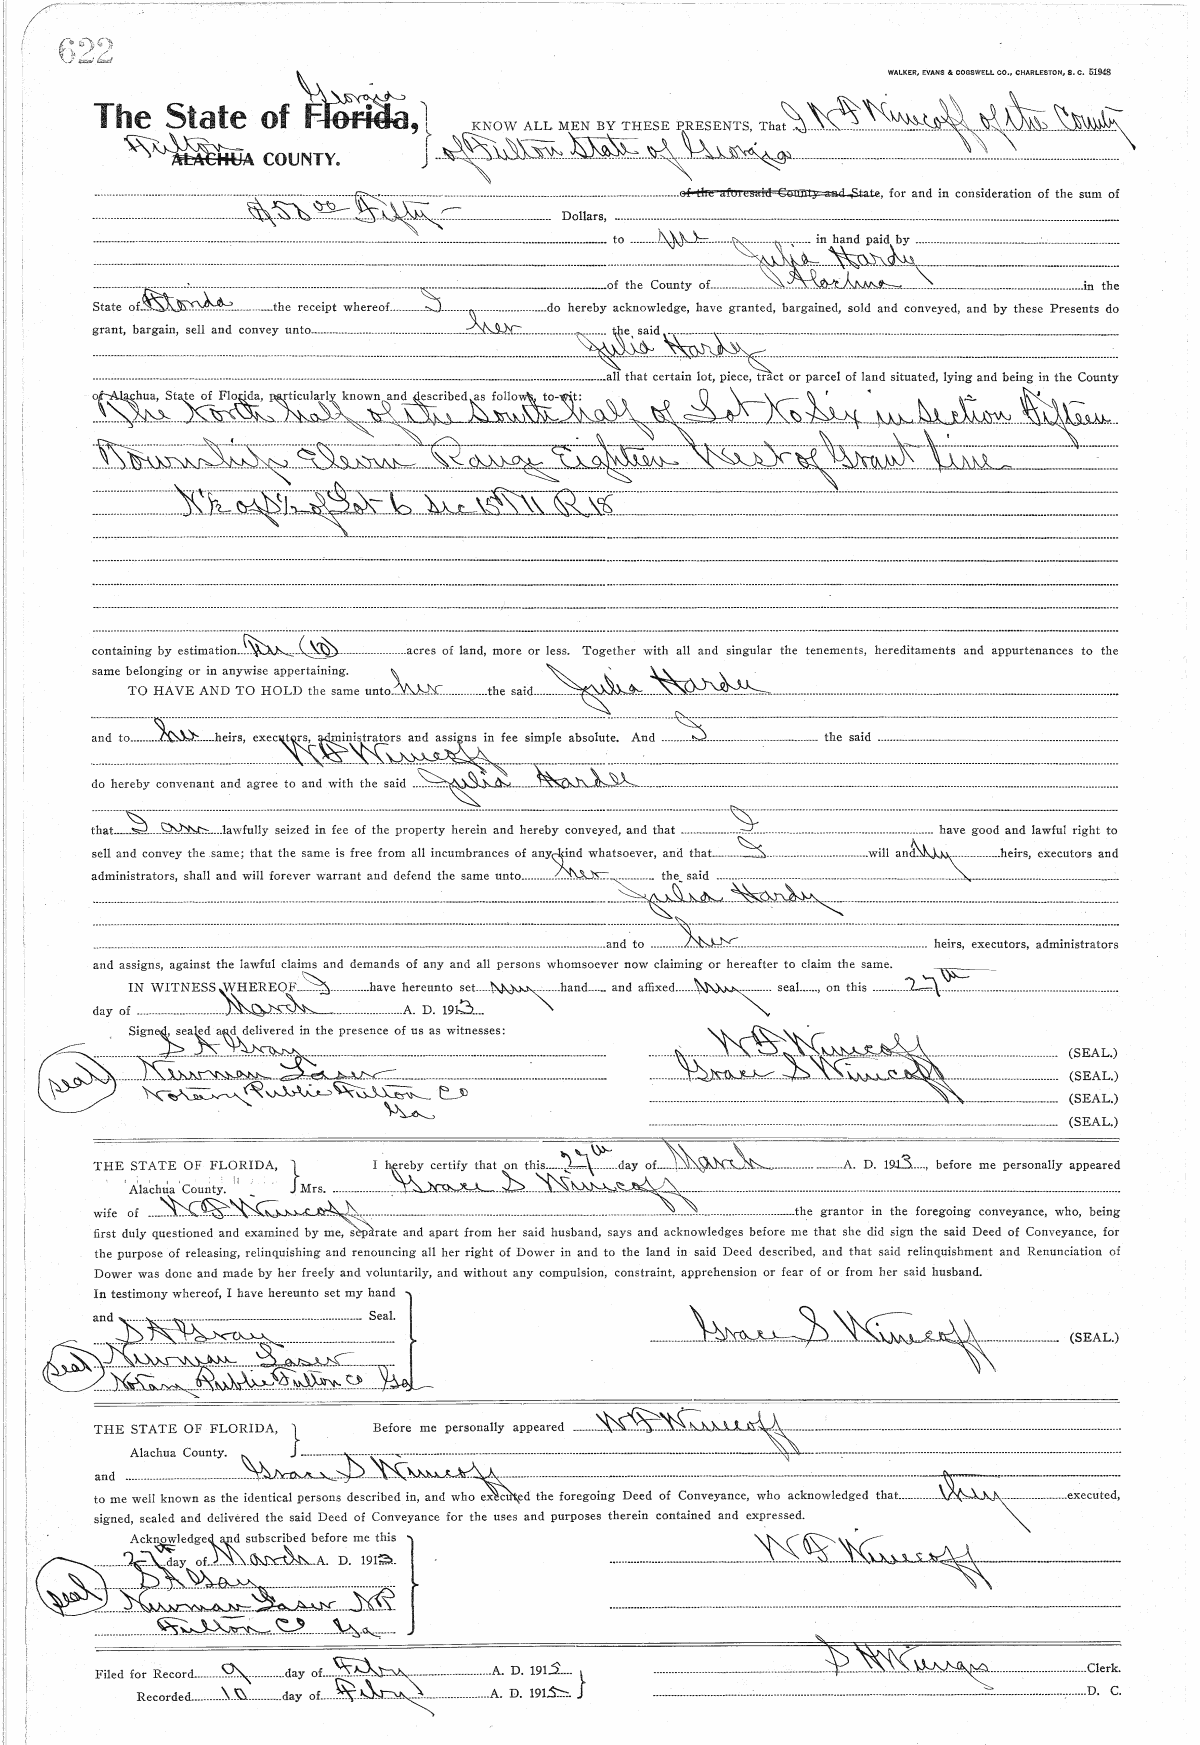 622
WALKER, EVANS & COGSWELL CO., CHARLESTON, S. C. 51948
Georgia
The State of Florida, KNOW ALL MEN BY THESE PRESENTS, That I W F Winecoff of the County
Fulton
ALACHUA COUNTY. of Fulton State of Georgia
of the aforesaid County and State, for and in consideration of the sum of
$50 00 Fifty — Dollars,
to me in hand paid by
Julia Hardy
of the County of Alachua in the
State of Florida the receipt whereof I do hereby acknowledge, have granted, bargained, sold and conveyed, and by these Presents do
grant, bargain, sell and convey unto her the said
Julia Hardy
all that certain lot, piece, tract or parcel of land situated, lying and being in the County
of Alachua, State of Florida, particularly known and described as follows, to-wit:
The North half of the South half of Lot No Six in Section Fifteen
Township Eleven Range Eighteen West of Grant line
N½ of S½ of Lot 6 Sec 15 T 11 R 18
containing by estimation Ten (10) acres of land, more or less. Together with all and singular the tenements, hereditaments and appurtenances to the
same belonging or in anywise appertaining.
TO HAVE AND TO HOLD the same unto her the said Julia Hardee
and to her heirs, executors, administrators and assigns in fee simple absolute. And I the said
W F Winecoff
do hereby convenant and agree to and with the said Julia Hardee
that I am lawfully seized in fee of the property herein and hereby conveyed, and that I have good and lawful right to
sell and convey the same; that the same is free from all incumbrances of any kind whatsoever, and that I will and My heirs, executors and
administrators, shall and will forever warrant and defend the same unto her the said
Julia Hardy
and to her heirs, executors, administrators
and assigns, against the lawful claims and demands of any and all persons whomsoever now claiming or hereafter to claim the same.
IN WITNESS WHEREOF I have hereunto set my hand and affixed my seal, on this 27th
day of March A. D. 1913
Signed, sealed and delivered in the presence of us as witnesses:
S A Gray W F Winecoff (SEAL.)
seal Newman Laser Grace S Winecoff (SEAL.)
Notary Public Fulton Co (SEAL.)
Ga (SEAL.)
THE STATE OF FLORIDA, I hereby certify that on this 27th day of March A. D. 1913, before me personally appeared
Alachua County. Mrs. Grace S Winecoff
wife of W F Winecoff the grantor in the foregoing conveyance, who, being
first duly questioned and examined by me, separate and apart from her said husband, says and acknowledges before me that she did sign the said Deed of Conveyance, for
the purpose of releasing, relinquishing and renouncing all her right of Dower in and to the land in said Deed described, and that said relinquishment and Renunciation of
Dower was done and made by her freely and voluntarily, and without any compulsion, constraint, apprehension or fear of or from her said husband.
In testimony whereof, I have hereunto set my hand
and Seal.
S A Gray Grace S Winecoff (SEAL.)
seal Newman Laser
Notary Public Fulton Co Ga
THE STATE OF FLORIDA, Before me personally appeared W F Winecoff
Alachua County.
and Grace S Winecoff
to me well known as the identical persons described in, and who executed the foregoing Deed of Conveyance, who acknowledged that they executed,
signed, sealed and delivered the said Deed of Conveyance for the uses and purposes therein contained and expressed.
Acknowledged and subscribed before me this
27th day of March A. D. 1913. W F Winecoff
S A Gray
seal Newman Laser NP
Fulton Co Ga
Filed for Record 9 day of Feby A. D. 1915 S H Wienges Clerk.
Recorded 10 day of Feby A. D. 1915 D. C.